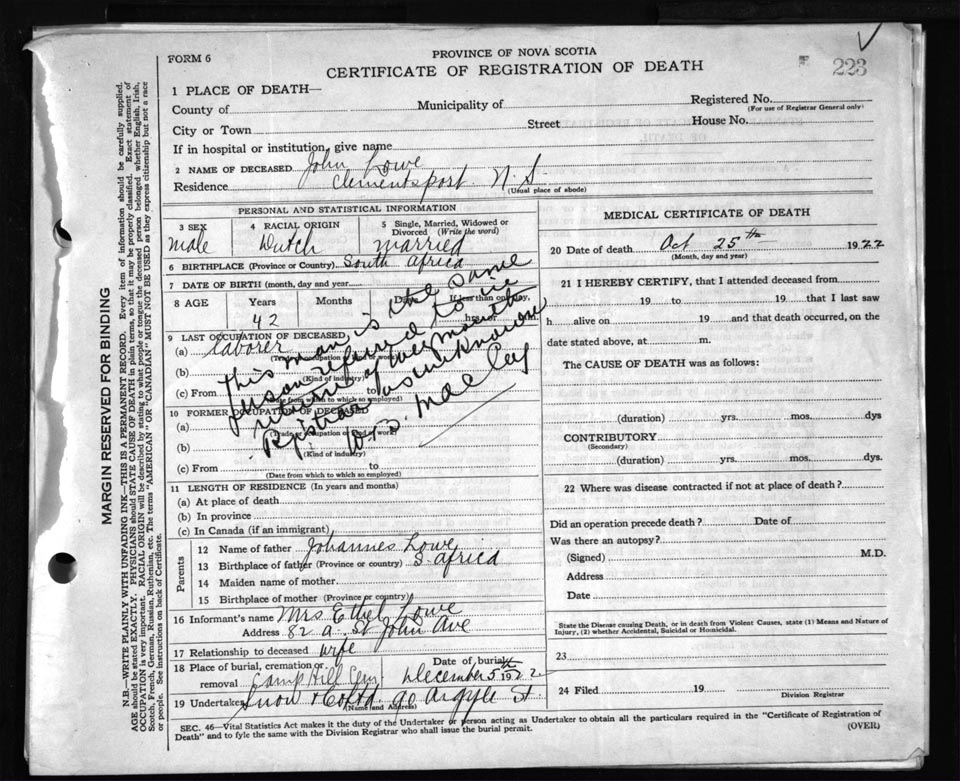 FORM 6
PROVINCE OF NOVA SCOTIA
CERTIFICATE OF REGISTRATION OF DEATH
223
1 PLACE OF DEATH—
County of Municipality of Registered No.
(For use of Registrar General only)
City or Town Street House No.
If in hospital or institution, give name
2 NAME OF DECEASED John Lowe
Residence Clementsport N.S
(Usual place of abode)
PERSONAL AND STATISTICAL INFORMATION
3 SEX 4 RACIAL ORIGIN 5 Single, Married, Widowed or Divorced (Write the word)
Male Dutch Married
6 BIRTHPLACE (Province or Country) South Africa
7 DATE OF BIRTH (month, day and year)
8 AGE Years Months Days If less than one day,
42 hrs. or
9 LAST OCCUPATION OF DECEASED,
(a) laborer
(Trade or occupation or work)
(b)
(Kind of industry)
(c) From to
(Date from which to which so employed)
This man is the same
person referred to in
return of over month
Registrar was unknown
10 FORMER OCCUPATION OF DECEASED
(a)
(Trade or occupation or kind of work)
(b)
(Kind of industry)
(c) From to
(Date from which to which so employed)
11 LENGTH OF RESIDENCE (In years and months)
(a) At place of death
(b) In province
(c) In Canada (if an immigrant)
Parents
12 Name of father Johannes Lowe
13 Birthplace of father (Province or country) S. Africa
14 Maiden name of mother
15 Birthplace of mother (Province or country)
16 Informant's name Mrs Ethel Lowe
Address 82 a St John Ave
17 Relationship to deceased wife
18 Place of burial, cremation or removal Camp Hill Cem Date of burial December 5th 1922
19 Undertaker Snow & Co Ltd 90 Argyle St.
(Name and Address)
MEDICAL CERTIFICATE OF DEATH
20 Date of death Oct 25th 1922
(Month, day and year)
21 I HEREBY CERTIFY, that I attended deceased from
19 to 19 that I last saw
h alive on 19 and that death occurred, on the
date stated above, at m.
The CAUSE OF DEATH was as follows:
(duration) yrs. mos. dys
CONTRIBUTORY
(Secondary)
(duration) yrs. mos. dys.
22 Where was disease contracted if not at place of death?
Did an operation precede death? Date of
Was there an autopsy?
(Signed) M.D.
Address
Date
State the Disease causing Death, or in death from Violent Causes, state (1) Means and Nature of
Injury, (2) whether Accidental, Suicidal or Homicidal.
23
24 Filed 19
Division Registrar
SEC. 46—Vital Statistics Act makes it the duty of the Undertaker or person acting as Undertaker to obtain all the particulars required in the "Certificate of Registration of
Death" and to fyle the same with the Division Registrar who shall issue the burial permit.
(OVER)
MARGIN RESERVED FOR BINDING
N.B.—WRITE PLAINLY WITH UNFADING INK—THIS IS A PERMANENT RECORD. Every item of information should be carefully supplied.
AGE should be stated EXACTLY. PHYSICIANS should STATE CAUSE OF DEATH in plain terms, so that it may be properly classified. Exact statement of
OCCUPATION is very important. RACIAL ORIGIN will be described by stating to what people or tongue the deceased person belonged whether English, Irish,
Scotch, French, German, Russian, Ruthenian, etc. The terms "AMERICAN" OR "CANADIAN" MUST NOT BE USED as they express citizenship but not a race
or people. See instructions on back of Certificate.